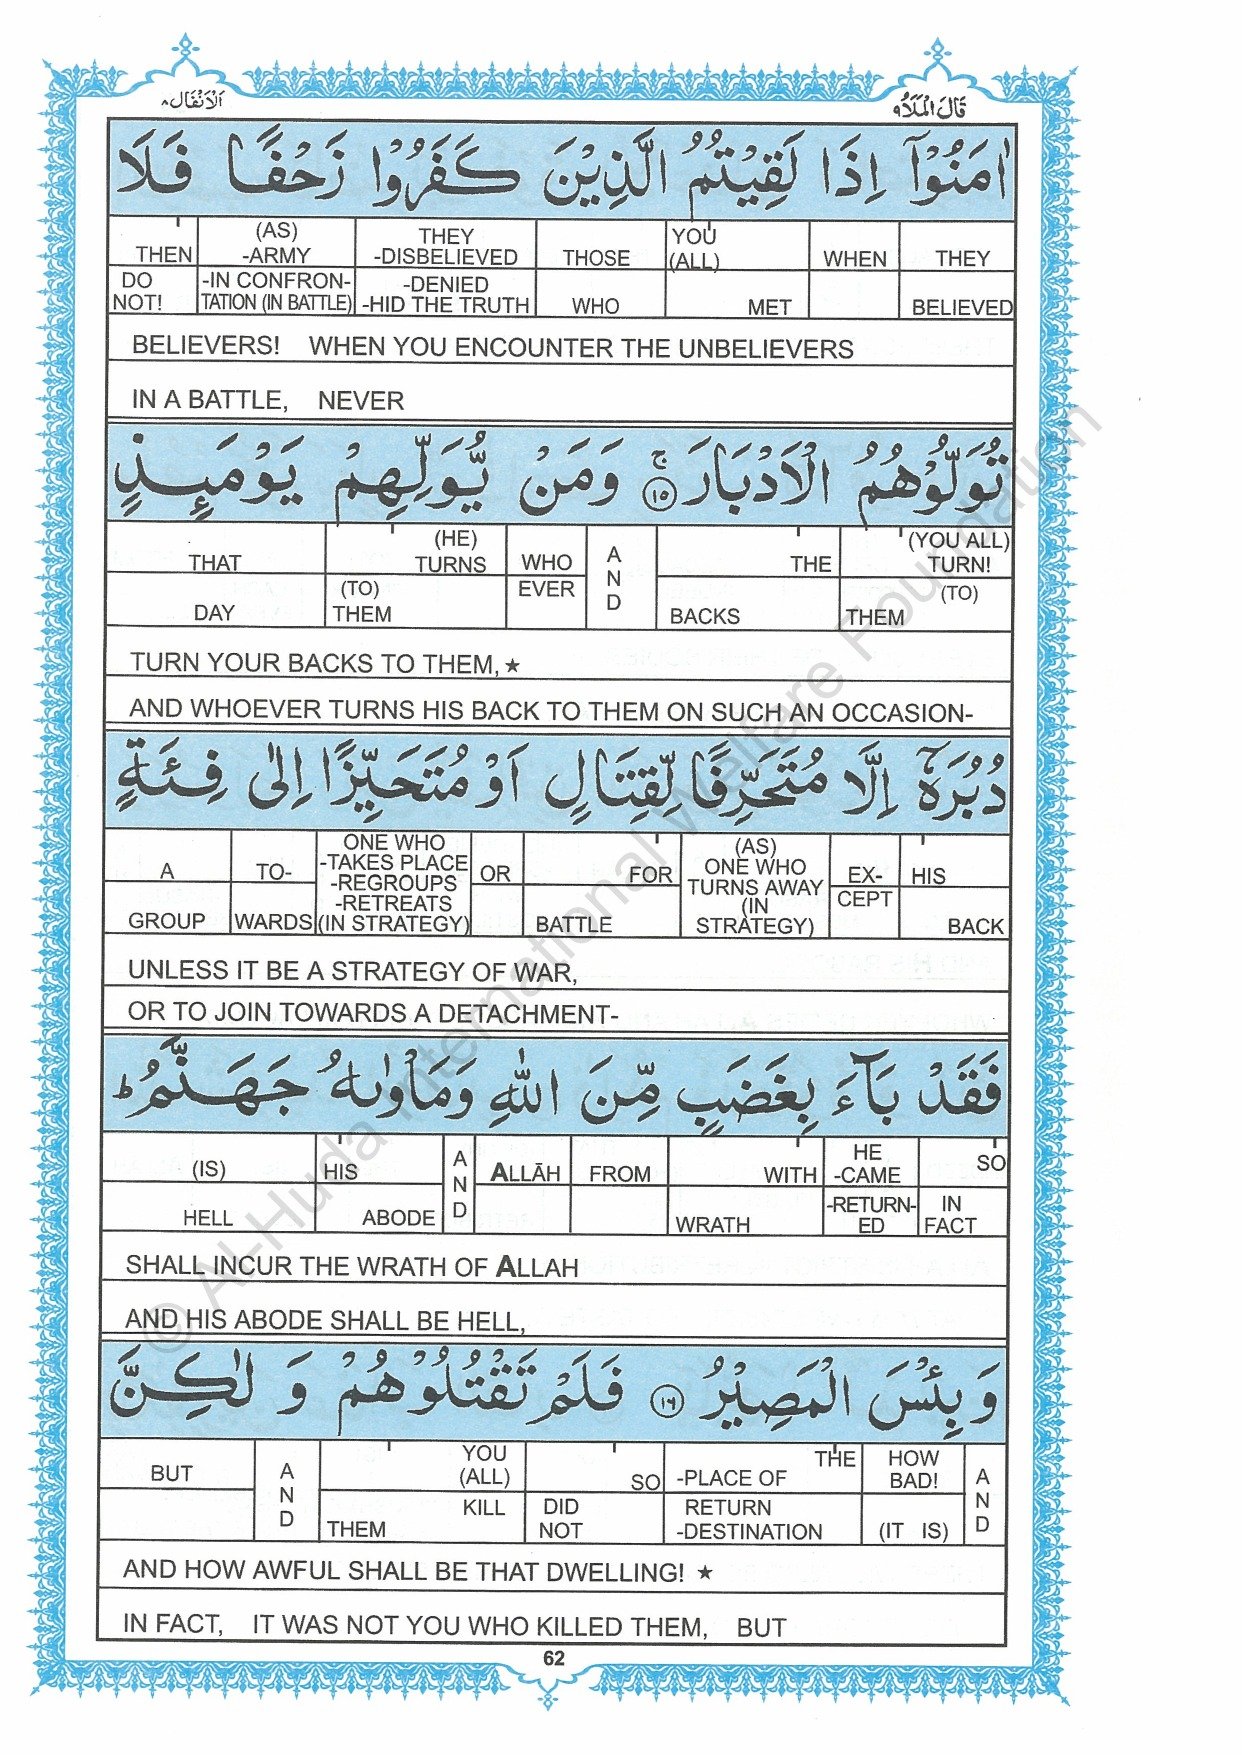 قَالَ الْمَلَاُ ٩
اَلْاَنْفَال ٨
اٰمَنُوْۤا اِذَا لَقِيْتُمُ الَّذِيْنَ كَفَرُوْا زَحْفًا فَلَا
THEN (AS) -ARMY THEY -DISBELIEVED THOSE YOU (ALL) WHEN THEY
DO NOT! -IN CONFRON- TATION (IN BATTLE) -DENIED -HID THE TRUTH WHO MET BELIEVED
BELIEVERS! WHEN YOU ENCOUNTER THE UNBELIEVERS
IN A BATTLE, NEVER
تُوَلُّوْهُمُ الْاَدْبَارَ ۚ ١٥ وَمَنْ يُّوَلِّهِمْ يَوْمَئِذٍ
THAT (HE) TURNS WHO AND THE (YOU ALL) TURN!
DAY (TO) THEM EVER BACKS (TO) THEM
TURN YOUR BACKS TO THEM, ★
AND WHOEVER TURNS HIS BACK TO THEM ON SUCH AN OCCASION-
دُبُرَهٗۤ اِلَّا مُتَحَرِّفًا لِّقِتَالٍ اَوْ مُتَحَيِّزًا اِلٰى فِئَةٍ
A TO- ONE WHO -TAKES PLACE -REGROUPS -RETREATS (IN STRATEGY) OR FOR (AS) ONE WHO TURNS AWAY (IN STRATEGY) EX- HIS
GROUP WARDS BATTLE CEPT BACK
UNLESS IT BE A STRATEGY OF WAR,
OR TO JOIN TOWARDS A DETACHMENT-
فَقَدْ بَآءَ بِغَضَبٍ مِّنَ اللّٰهِ وَمَاْوٰىهُ جَهَنَّمُ ؕ
(IS) HIS AND ALLĀH FROM WITH HE -CAME SO
HELL ABODE WRATH -RETURN- ED IN FACT
SHALL INCUR THE WRATH OF ALLAH
AND HIS ABODE SHALL BE HELL,
وَبِئْسَ الْمَصِيْرُ ١٦ فَلَمْ تَقْتُلُوْهُمْ وَ لٰكِنَّ
BUT AND YOU (ALL) SO THE -PLACE OF HOW BAD! AND
THEM KILL DID NOT RETURN -DESTINATION (IT IS)
AND HOW AWFUL SHALL BE THAT DWELLING! ★
IN FACT, IT WAS NOT YOU WHO KILLED THEM, BUT
62
© Al-Huda International Welfare Foundation